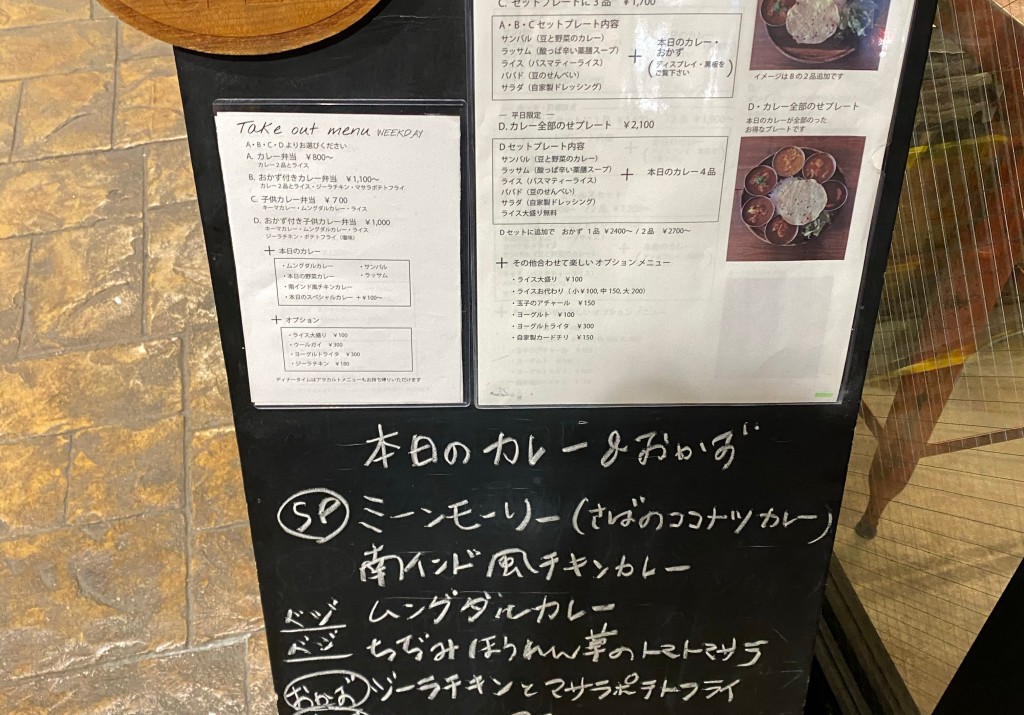 Take out menu WEEKDAY
A・B・C・Dよりお選びください
A. カレー弁当 ￥800〜
カレー2品とライス
B. おかず付きカレー弁当 ￥1,100〜
カレー2品とライス・ジーラチキン・マサラポテトフライ
C. 子供カレー弁当 ￥700
キーマカレー・ムングダルカレー・ライス
D. おかず付き子供カレー弁当 ￥1,000
キーマカレー・ムングダルカレー・ライス
ジーラチキン・ポテトフライ（塩味）
＋ 本日のカレー
・ムングダルカレー ・サンバル
・本日の野菜カレー ・ラッサム
・南インド風チキンカレー
・本日のスペシャルカレー ＋￥100〜
＋ オプション
・ライス大盛り ￥100
・ウールガイ ￥300
・ヨーグルトライタ ￥300
・ジーラチキン ￥180
ディナータイムはアラカルトメニューもお持ち帰りいただけます
C. セットプレートに3品 ￥1,700
A・B・Cセットプレート内容
サンバル（豆と野菜のカレー）
ラッサム（酸っぱ辛い薬膳スープ）
ライス（バスマティーライス）
パパド（豆のせんべい）
サラダ（自家製ドレッシング）
＋ 本日のカレー・
おかず
（ディスプレイ・黒板を
ご覧下さい）
― 平日限定 ―
D. カレー全部のせプレート ￥2,100
Dセットプレート内容
サンバル（豆と野菜のカレー）
ラッサム（酸っぱ辛い薬膳スープ）
ライス（バスマティーライス）
パパド（豆のせんべい）
サラダ（自家製ドレッシング）
ライス大盛り無料
＋ 本日のカレー4品
Dセットに追加で おかず 1品 ￥2400〜 / 2品 ￥2700〜
＋ その他合わせて楽しいオプションメニュー
・ライス大盛り ￥100
・ライスお代わり（小￥100, 中150, 大200）
・玉子のアチャール ￥150
・ヨーグルト ￥100
・ヨーグルトライタ ￥300
・自家製カードチリ ￥150
イメージはBの2品追加です
D・カレー全部のせプレート
本日のカレーが全部のった
お得なプレートです
本日のカレー&おかず
SP ミーンモーリー（さばのココナツカレー）
南インド風チキンカレー
ベジ ムングダルカレー
ベジ ちぢみほうれん草のトマトマサラ
おかず ジーラチキンとマサラポテトフライ